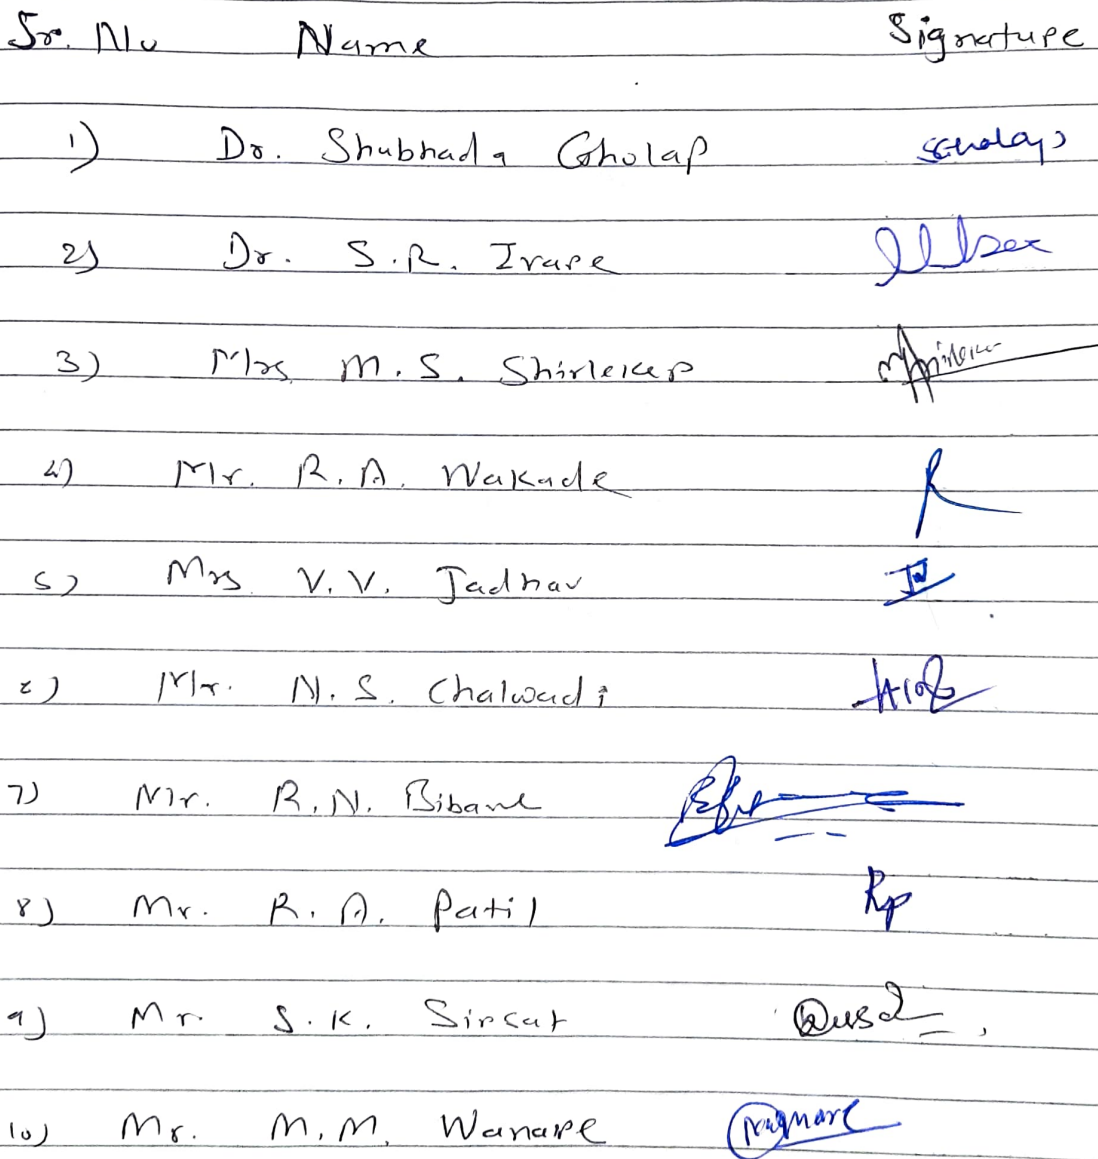 Sr. No Name Signature
1) Dr. Shubhada Gholap SGholap
2) Dr. S.R. Irare
3) Mrs M.S. Shirlekar
4) Mr. R.A. Wakade R
5) Mrs V.V. Jadhav
6) Mr. N.S. Chalwadi
7) Mr. R.N. Bibave
8) Mr. R.A. Patil Rp
9) Mr. S.K. Sirsat
10) Mr. M.M. Wanare